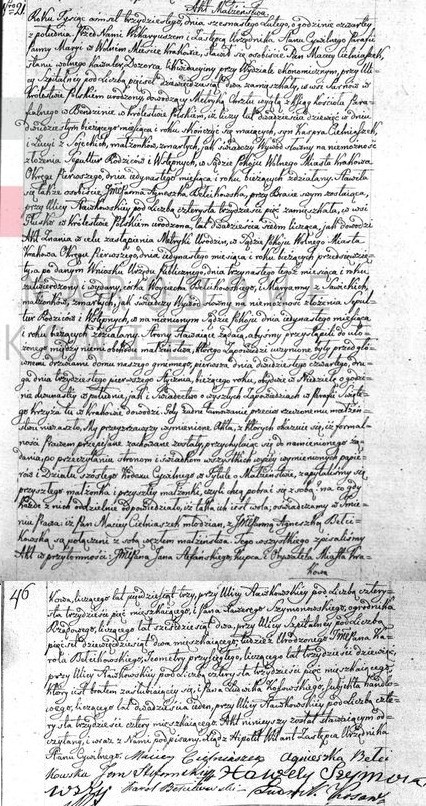 Nro 21. Akt Małżeństwa.
Roku Tysiąc ośmset trzydziestego, dnia szesnastego Lutego, o godzinie czwartej
z południa. Przed Nami Wikaryuszem i Zastępcą Urzędnika Stanu Cywilnego Parafii
Panny Maryi w Wolnem Mieście Krakowie, stawił się osobiście Pan Maciej Cieluiaszek,
stanu wolnego kawaler, Dozorca przy Wydziale ekonomicznym, przy Uli-
cy Szpitalnej pod Liczbą pięćset dziewięćdziesiąt dwa zamieszkały, w wsi w
Królestwie Polskim urodzony, dowodzący Metryką Chrztu wyjętą z Ksiąg kościoła Para-
fialnego w Bendzinie w Królestwie Polskim, iż liczy lat dwadzieścia dziewięć w dniu
dwudziestym bieżącego miesiąca i roku skończyć się mających, syn Kaspra
i Łucyi z małżonków, zmarłych, jak świadczy Wywód słowny na niemożność
złożenia Sepultur Rodziców i Wstępnych, w Sądzie Pokoju Wolnego Miasta Krakowa
Okręgu Pierwszego, dnia jedynastego miesiąca i roku bieżących zdziałany. Stawiła
się także osobiście JMPanna Agnieszka Belcikowska, przy Bracie swym zostająca,
przy Ulicy Sławkowskiej pod Liczbą czterysta trzydzieści pięć zamieszkała, w wsi
w Królestwie Polskim urodzona, lat dwadzieścia siedm licząca, jak dowodzi
Akt Znania w celu zastąpienia Metryki Urodzin, w Sądzie Pokoju Wolnego Miasta
Krakowa Okręgu Pierwszego, dnia jedynastego miesiąca i roku bieżących
tysa po danym Wniosku Urzędu Publicznego, dnia trzynastego tegoż miesiąca i roku,
zatwierdzony i wydany, córka Wojciecha Belcikowskiego, i Maryanny z
małżonków, zmarłych, jak świadczy Wywód słowny na niemożność złożenia Sepul-
tur Rodziców i Wstępnych, w na mienionym Sądzie Pokoju dnia jedynastego miesiąca
i roku bieżących zdziałany. Strony stawające żądają, abyśmy przystąpili do uło-
żonego między niemi obchodu małżeństwa, którego Zapowiedzi uczynione były przed głó-
wnemi drzwiami domu naszego gminnego, pierwsza dnia dwudziestego czwartego, dru-
ga dnia trzydziestego pierwszego Stycznia, bieżącego roku, obydwie w Niedzielę o godzi-
nie dwunastej w południe, jak i świadectwo o wyszłych Zapowiedziach w Parafii Święte-
go Krzyża tu w Krakowie dowodzi. Gdy żadne tamowanie przeciw rzeczonemu małżeń-
stwu nie zaszło, My przejrzawszy wymienione Akta, z których okazuje się, iż formal-
ności Prawem przepisane zachowane zostały, przychylając się do namienionego żą-
dania, po przeczytaniu stronom i świadkom wszystkich wyżej wymienionych papie-
rów i Działu szóstego Kodexu Cywilnego w Tytule o Małżeństwie, zapytaliśmy się
przyszłego małżonka i przyszłej małżonki, czyli chcą pobrać się z sobą? na co gdy
każde z nich oddzielnie odpowiedziało, iż taka ich jest wola, oświadczamy w Imie-
niu Prawa, iż Pan Maciej Cieluiaszek młodzian, z JMPanną Agnieszką Belci-
kowską są połączeni z sobą węzłem małżeństwa. Tego wszystkiego spisaliśmy
Akt w przytomności: JMPana Jana Stefańskiego, Kupca i Obywatela Miasta Kra-
kowa
46
kowa, liczącego lat pięćdziesiąt trzy, przy Ulicy Sławkowskiej pod Liczbą cztery-
sta trzydzieści pięć mieszkającego, i Pana Xawerego Szymonowskiego, ogrodnika
Rządowego, liczącego lat sześćdziesiąt dwa, przy Ulicy Szpitalnej pod Liczbą
pięćset dziewięćdziesiąt dwa mieszkającego, tudzież Urodzonego JMPana Ka-
rola Belcikowskiego, Geometry przysięgłego, liczącego lat trzydzieści dziewięć,
przy Ulicy Sławkowskiej pod Liczbą czterysta trzydzieści pięć mieszkającego,
który jest bratem zaślubiającej się, i Pana Ludwika subjekta handlo-
wego, liczącego lat dwadzieścia jeden, przy Ulicy Sławkowskiej pod Liczbą czte-
rysta trzydzieści cztery mieszkającego. Akt niniejszy został stawającym od-
czytany, i wraz z Nami podpisany. Xiądz Hipolit Zastępca Urzędnika
Stanu Cywilnego. Maciej Agnieszka Belci
kowska Jan Stefański Xawery Szymono
wski Karol Belcikowski Ludwik